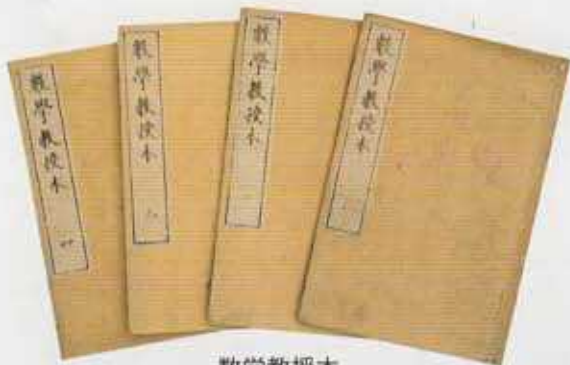 數學教授本
數學教授本
數學教授本
數學教授本
四
数学教授本